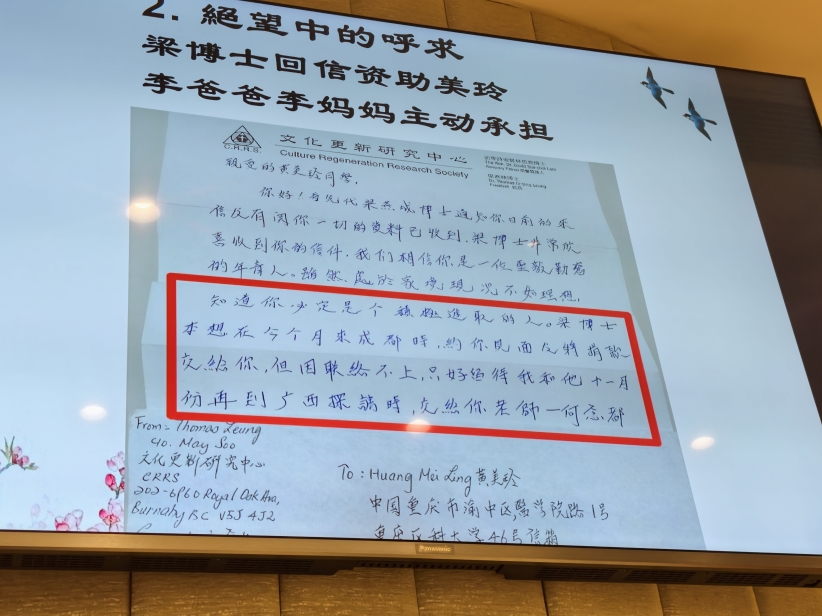 2. 絕望中的呼求
梁博士回信资助美玲
李爸爸李妈妈主动承担
C.R.R.S.
文化更新研究中心
Culture Regeneration Research Society
親愛的黄美玲同學,
你好!首先代梁燕成博士通知你日前的來
信及有関你一切的資料已收到,梁博士非常欣
喜收到你的信件,我们相信你是一位勇敢勤奮
的年青人。雖然處於家境現況不如理想,
知道你必定是个積極進取的人。梁博士
本想在今个月來成都時,約你見面及將捐款
交給你,但因聯絡不上,只好等待我和他十一月
份再到广西探訪時,交給你老師一何念都
From: Thomas Leung
c/o. May Soo
文化更新研究中心
CRRS
202-6960 Royal Oak Ave,
Burnaby BC V5J 4J2
To: Huang Mei Ling 黄美玲
中国重庆市渝中区醫学院路1号
重庆医科大学46号信箱
Panasonic